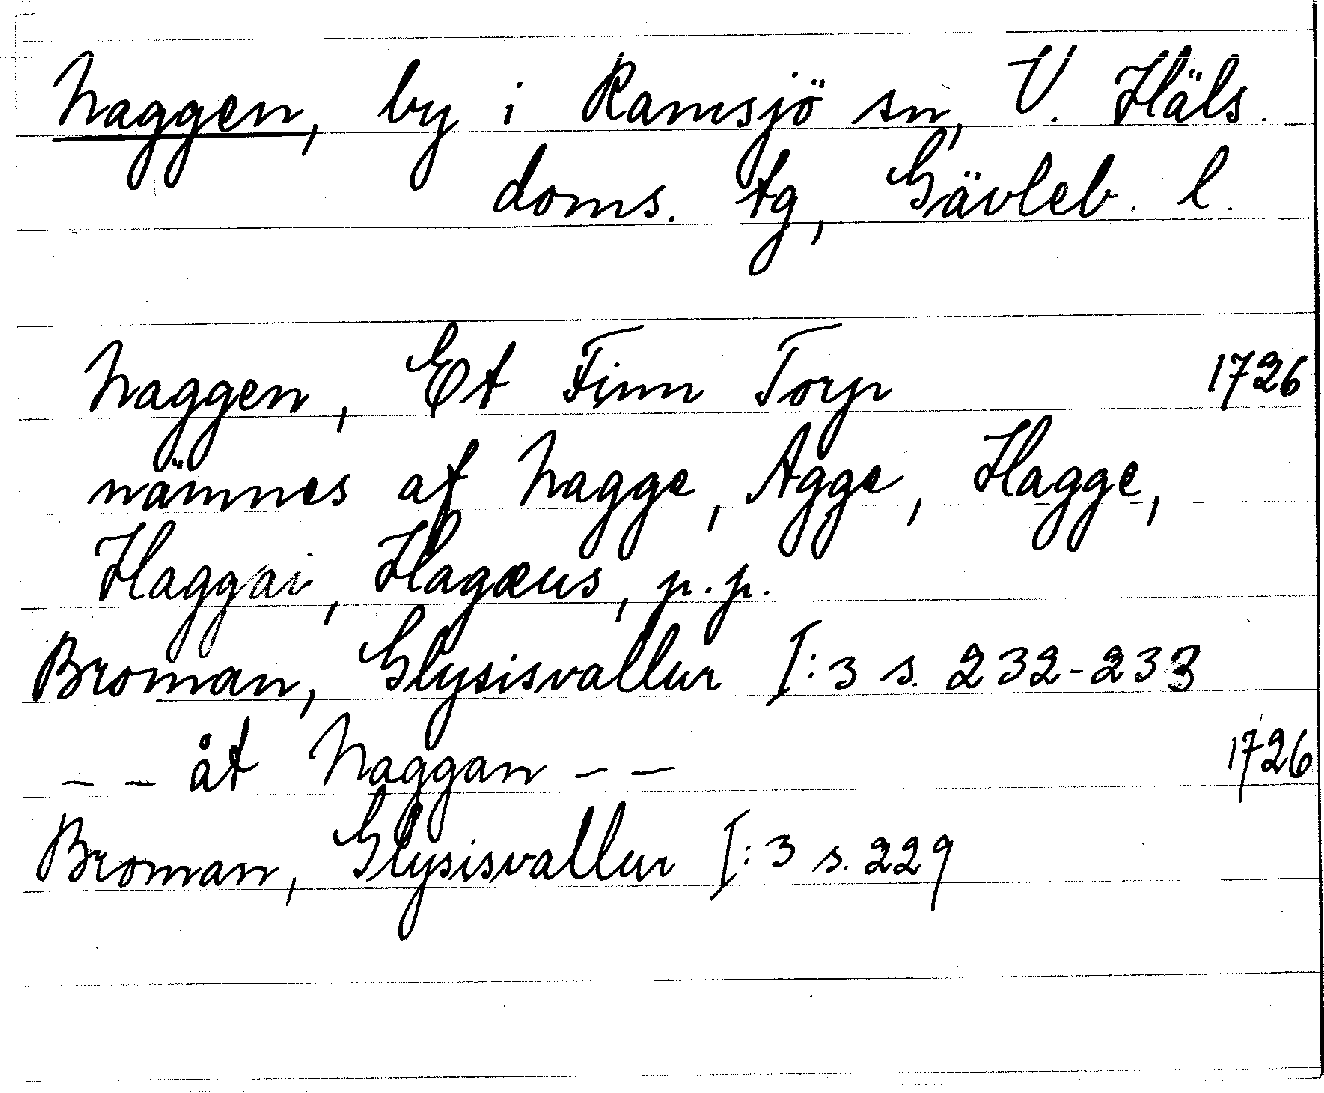 Naggen, by i Ramsjö sn, V. Häls.
doms. tg, Gävleb. l.
Naggen, Et Finn Torp 1726
nämnes af Nagge, Agge, Hagge,
Haggai, Hagæus, p.p.
Broman, Glysisvallur I:3 s. 232-233
– – åt Naggan – – 1726
Broman, Glysisvallur I:3 s. 229